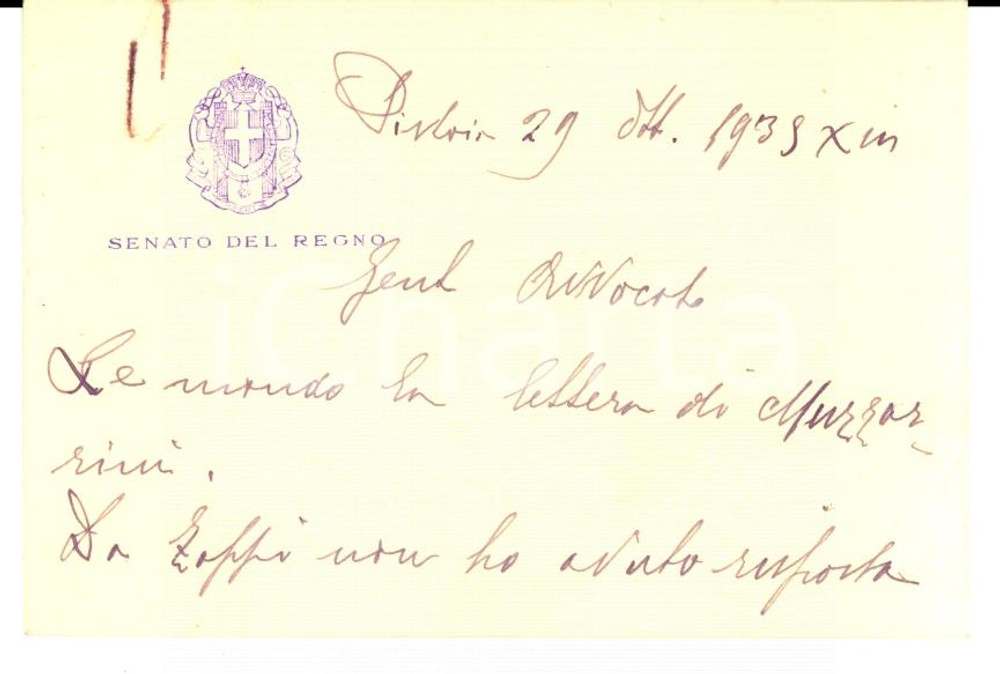 Pistoia 29 Ott. 1935 XIII
SENATO DEL REGNO
Gent Avvocato
Le mando la lettera di Muzzar-
rini.
Da Zoppi non ho avuto risposta
iCharta